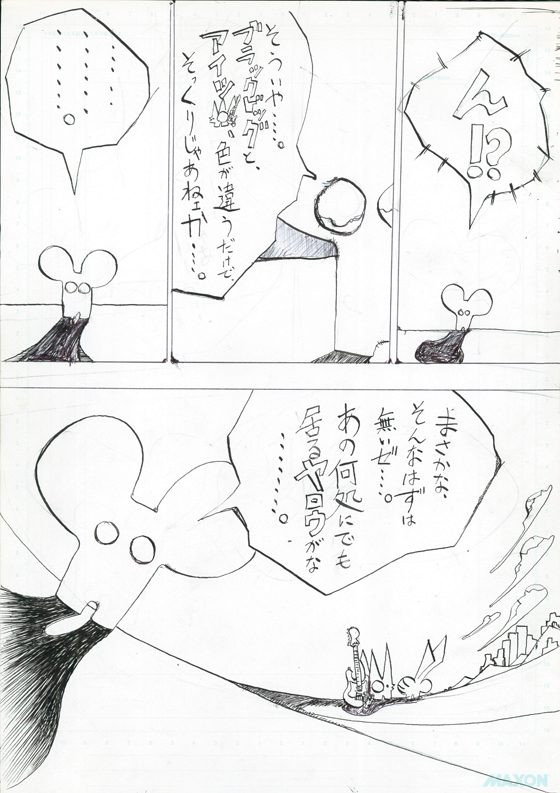 ん!?
そういや……。
ブラックビッグと、
アイツ、色が違うだけで、
そっくりじゃあねェか……。
………………。
まさかな、
そんなはずは
無いぜ……。
あの何処にでも
居るヤロウがな
………。
MAXON